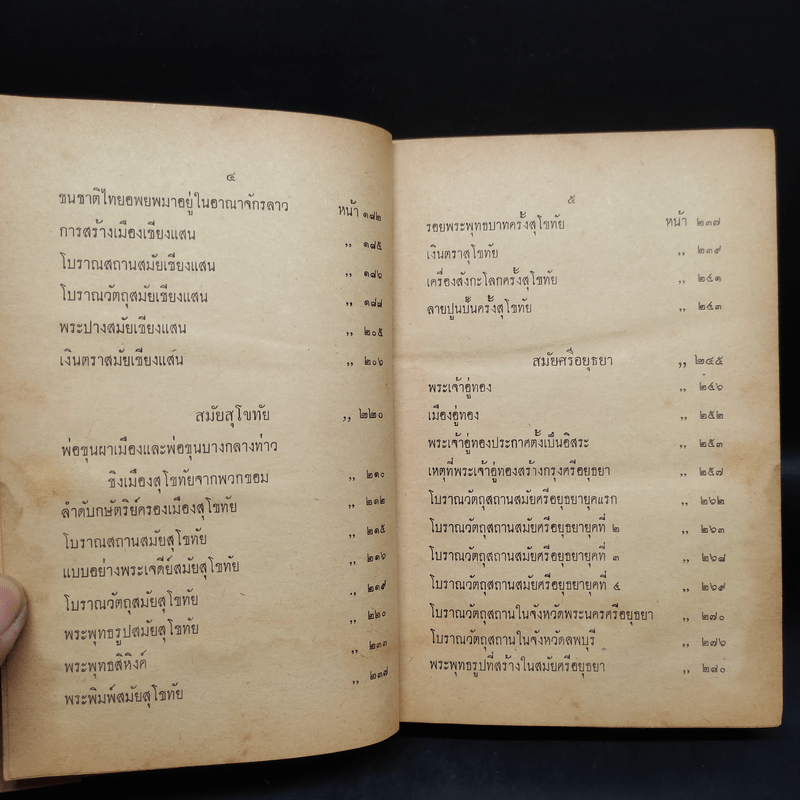 ๔
ชนชาติไทยอพยพมาอยู่ในอาณาจักรลาว หน้า ๑๘๒
การสร้างเมืองเชียงแสน ,, ๑๘๕
โบราณสถานสมัยเชียงแสน ,, ๑๘๖
โบราณวัตถุสมัยเชียงแสน ,, ๑๘๘
พระปางสมัยเชียงแสน ,, ๒๐๕
เงินตราสมัยเชียงแสน ,, ๒๐๖
สมัยสุโขทัย ,, ๒๒๐
พ่อขุนผาเมืองและพ่อขุนบางกลางท่าว
ชิงเมืองสุโขทัยจากพวกขอม ,, ๒๑๐
ลำดับกษัตริย์ครองเมืองสุโขทัย ,, ๒๑๒
โบราณสถานสมัยสุโขทัย ,, ๒๑๕
แบบอย่างพระเจดีย์สมัยสุโขทัย ,, ๒๑๖
โบราณวัตถุสมัยสุโขทัย ,, ๒๑๙
พระพุทธรูปสมัยสุโขทัย ,, ๒๒๐
พระพุทธสิหิงค์ ,, ๒๓๓
พระพิมพ์สมัยสุโขทัย ,, ๒๓๗
๕
รอยพระพุทธบาทครั้งสุโขทัย หน้า ๒๓๗
เงินตราสุโขทัย ,, ๒๓๙
เครื่องสังกะโลกครั้งสุโขทัย ,, ๒๔๑
ลายปูนปั้นครั้งสุโขทัย ,, ๒๔๓
สมัยศรีอยุธยา ,, ๒๔๕
พระเจ้าอู่ทอง ,, ๒๔๖
เมืองอู่ทอง ,, ๒๕๒
พระเจ้าอู่ทองประกาศตั้งเป็นอิสระ ,, ๒๕๓
เหตุที่พระเจ้าอู่ทองสร้างกรุงศรีอยุธยา ,, ๒๕๗
โบราณวัตถุสถานสมัยศรีอยุธยายุคแรก ,, ๒๖๒
โบราณวัตถุสถานสมัยศรีอยุธยายุคที่ ๒ ,, ๒๖๓
โบราณวัตถุสถานสมัยศรีอยุธยายุคที่ ๓ ,, ๒๖๘
โบราณวัตถุสถานสมัยศรีอยุธยายุคที่ ๔ ,, ๒๖๙
โบราณวัตถุสถานในจังหวัดพระนครศรีอยุธยา ,, ๒๗๐
โบราณวัตถุสถานในจังหวัดลพบุรี ,, ๒๗๖
พระพุทธรูปที่สร้างในสมัยศรีอยุธยา ,, ๒๗๐